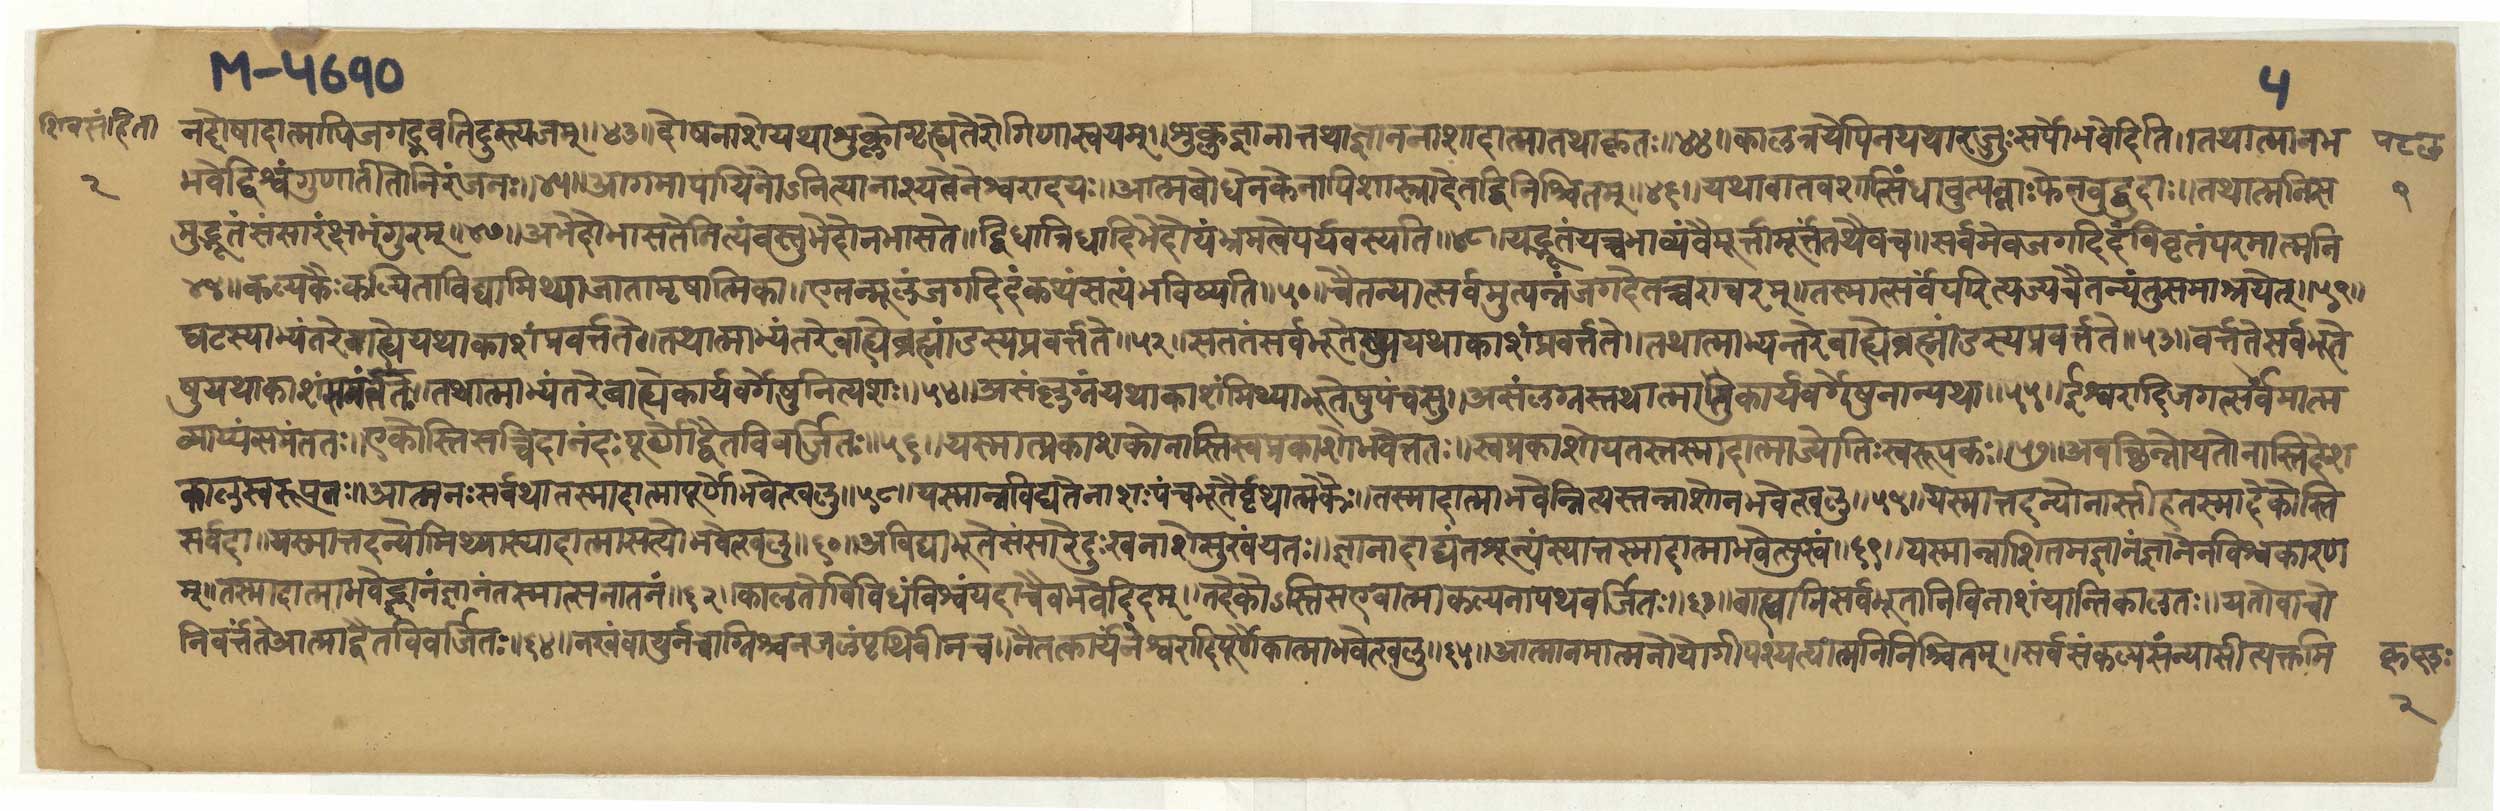 M-4690
5
शिवसंहिता
२
पटल
१
नदोषादात्मापिजगद्भवतिदुस्त्यजम्॥४३॥दोषनाशेयथाशुक्लोगृह्यतेरोगिणास्वयम्॥शुक्लज्ञानात्तथाज्ञाननाशादात्मातथाकृतः॥४४॥कालत्रयेपिनयथारज्जुःसर्पोभवेदिति॥तथात्मानभ
भवेद्विश्वंगुणातीतोनिरंजनः॥४५॥आगमापायिनोऽनित्यानाश्यत्वेनेश्वरादयः॥आत्मबोधेनकेनापिशास्त्रादेतद्विनिश्चितम्॥४६॥यथावातवशात्सिंधावुत्पन्नाःफेनबुद्बुदाः॥तथात्मनिस
मुद्भूतंसंसारंक्षभंगुरम्॥४७॥अभेदोभासतेनित्यंवस्तुभेदोनभासते॥द्विधात्रिधादिभेदोयंभ्रमत्वेपर्यवस्यति॥४८॥यद्भूतंयच्चभाव्यंवैमूर्त्तामूर्त्तंतथैवच॥सर्वमेवजगदिदंविवृतंपरमात्मनि
४९॥कल्पकैःकल्पिताविद्यामिथ्याजातामृषात्मिका॥एतन्मूलंजगदिदंकथंसत्यंभविष्यति॥५०॥चैतन्यात्सर्वमुत्पन्नंजगदेतच्चराचरम्॥तस्मात्सर्वंपरित्यज्यचैतन्यंतुसमाश्रयेत्॥५१॥
घटस्याभ्यंतरेबाह्येयथाकाशंप्रवर्त्तते॥तथात्माभ्यंतरेबाह्येब्रह्मांडस्यप्रवर्त्तते॥५२॥सततंसर्वभूतेषुयथाकाशंप्रवर्त्तते॥तथात्माभ्यन्तरेबाह्येब्रह्मांडस्यप्रवर्त्तते॥५३॥वर्त्ततेसर्वभूते
षुयथाकाशंसमंततः॥तथात्माभ्यंतरेबाह्येकार्यवर्गेषुनित्यशः॥५४॥असंलग्नंयथाकाशंमिथ्याभूतेषुपंचसु॥असंलग्नस्तथात्माकार्यवर्गेषुनान्यथा॥५५॥ईश्वरादिजगत्सर्वमात्म
व्याप्यंसमंततः॥एकोस्तिसच्चिदानंदःपूर्णोद्वैतविवर्जितः॥५६॥यस्मात्प्रकाशकोनास्तिस्वप्रकाशोभवेत्ततः॥स्वप्रकाशोयतस्तस्मादात्माज्योतिःस्वरूपकः॥५७॥अवच्छिन्नोयतोनास्तिदेश
कालस्वरूपतः॥आत्मनःसर्वथातस्मादात्मापूर्णोभवेत्खलु॥५८॥यस्मान्नविद्यतेनाशःपंचभूतैर्वृथात्मकैः॥तस्मादात्माभवेन्नित्यस्तन्नाशोनभवेत्खलु॥५९॥यस्मात्तदन्योनास्तीहतस्मादेकोस्ति
सर्वदा॥यस्मात्तदन्योमिथ्यास्यादात्मासत्योभवेत्खलु॥६०॥अविद्याभूतेसंसारेदुःखनाशेसुखंयतः॥ज्ञानादाद्यंतशून्यंस्यात्तस्मादात्माभवेत्सुखं॥६१॥यस्मान्नाशितमज्ञानंज्ञानेनविश्वकारण
म्॥तस्मादात्माभवेज्ज्ञानंज्ञानंतस्मात्सनातनं॥६२॥कालतोविविधंविश्वंयदाचैवभवेदिदम्॥तदेकोऽस्तिसएवात्माकल्पनापथवर्जितः॥६३॥बाह्यानिसर्वभूतानिविनाशंयान्तिकालतः॥यतोवाचो
निवर्त्ततेआत्माद्वैतविवर्जितः॥६४॥नखंवायुर्नचाग्निश्चनजलंपृथिवीनच॥नैतत्कार्यंनेश्वरादिपूर्णैकात्माभवेत्खलु॥६५॥आत्मानमात्मनोयोगीपश्यत्यात्मनिनिश्चितम्॥सर्वसंकल्पसंन्यासीत्यक्तमि
२